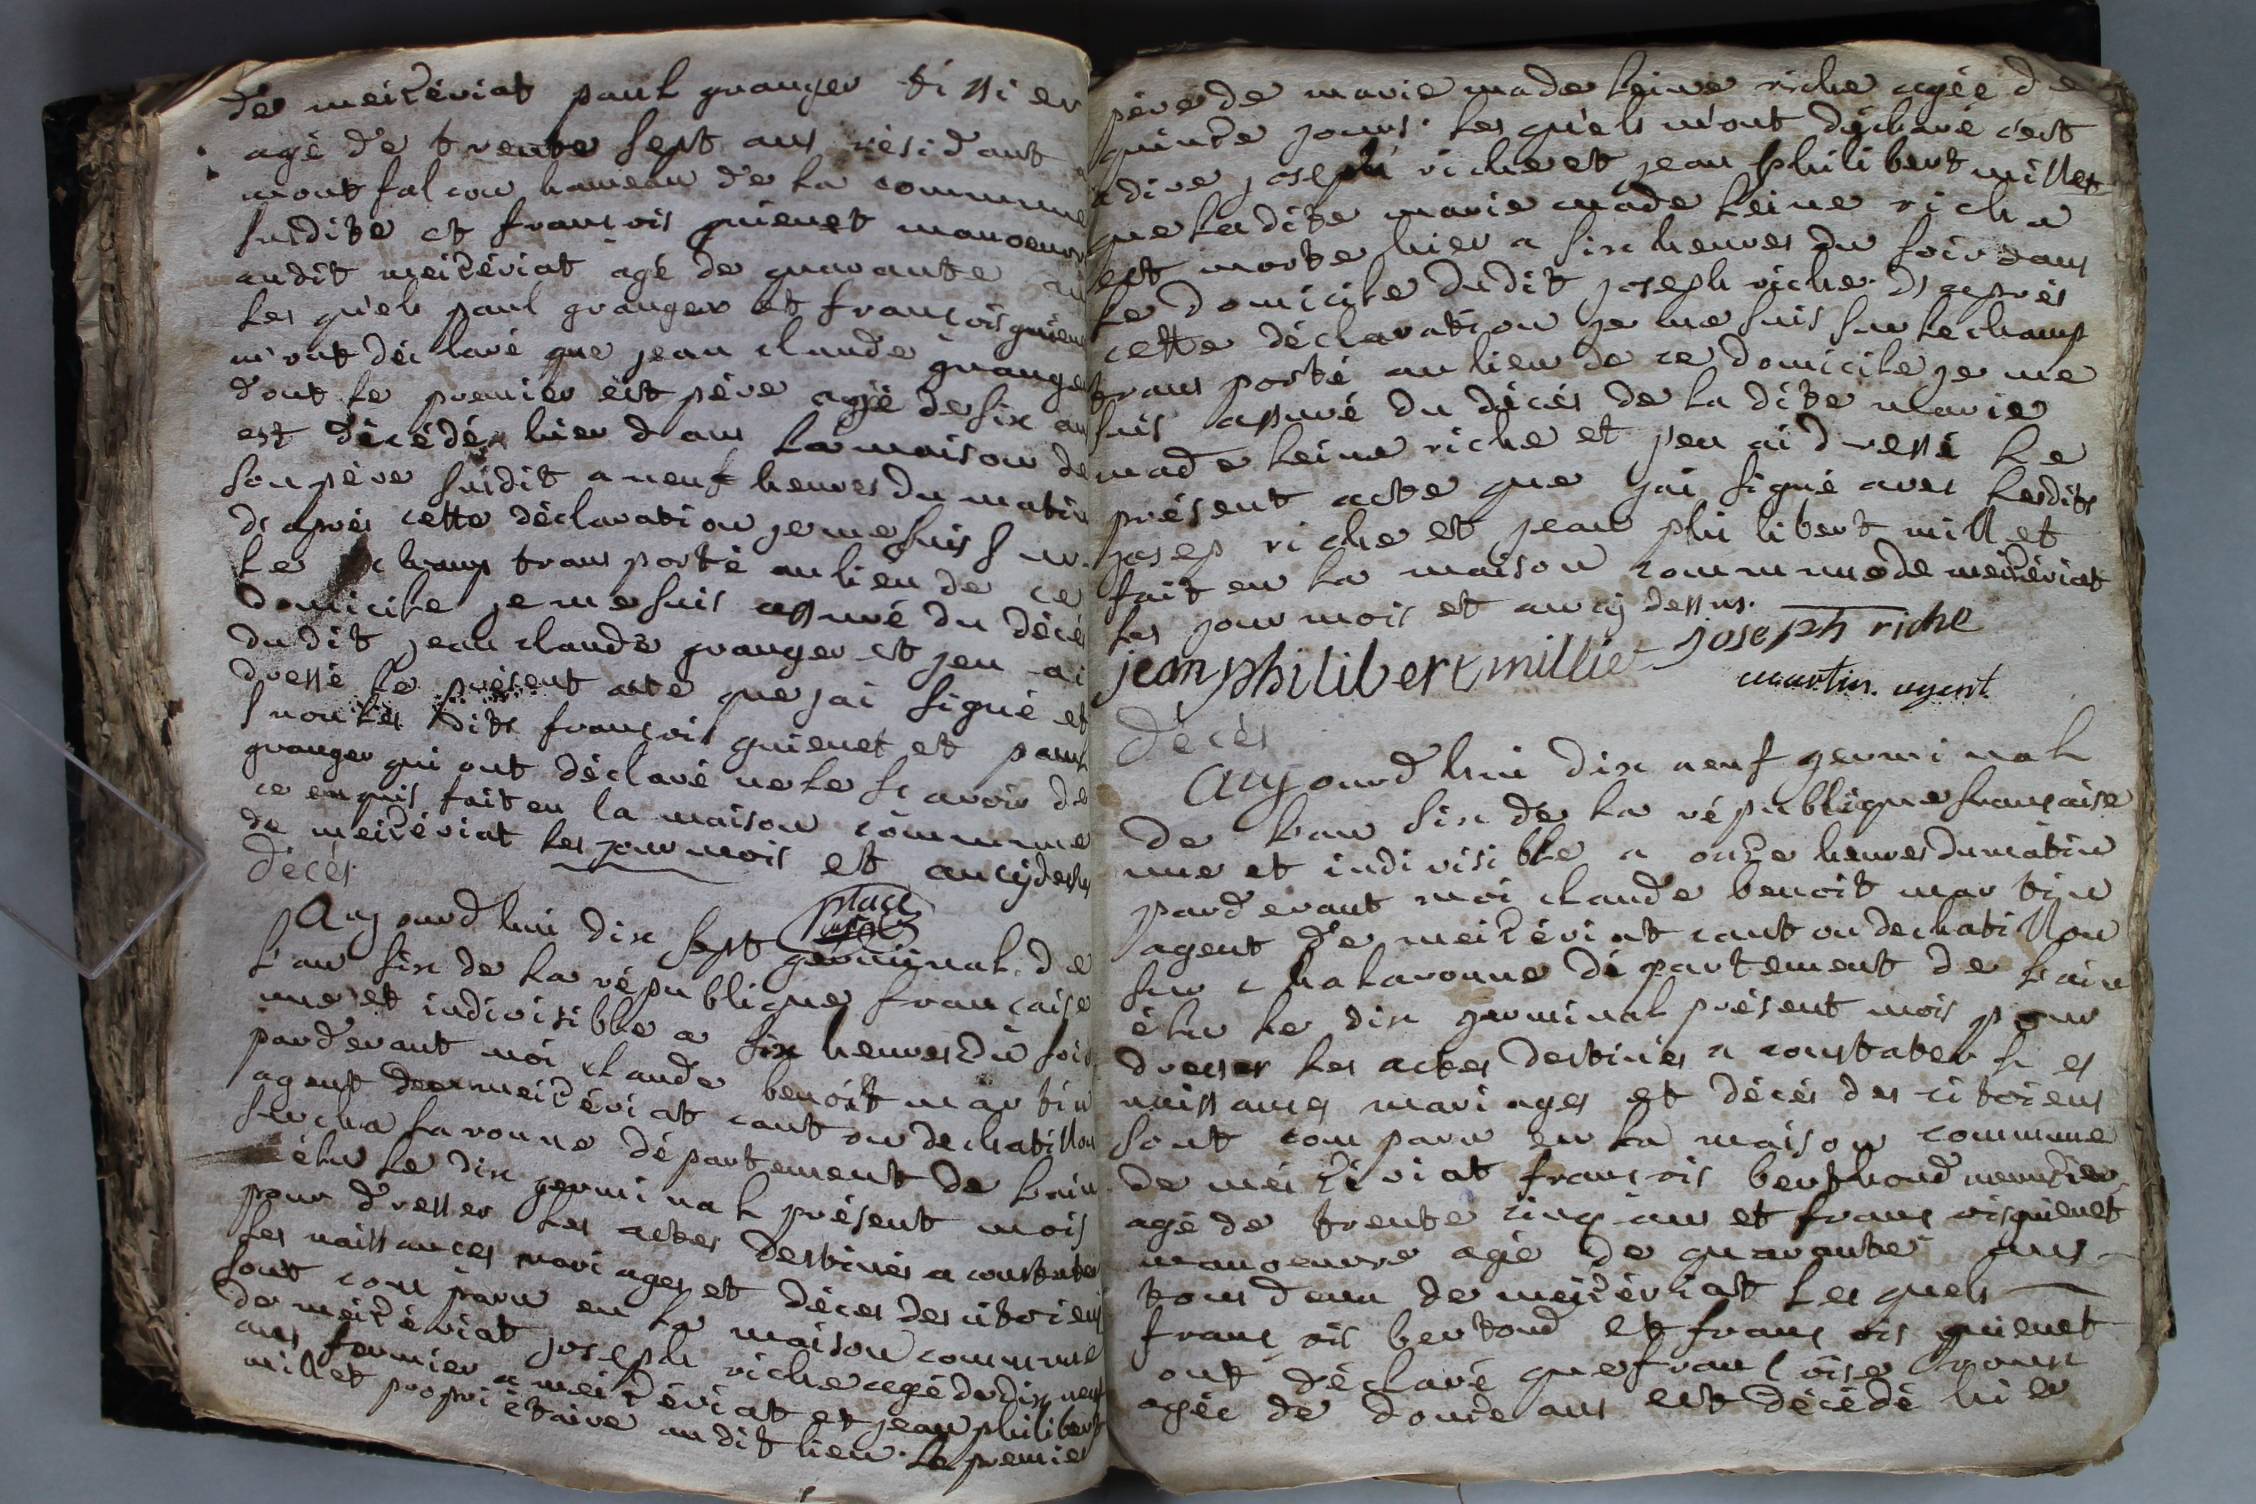 de meizériat paul granger tissier
agé de trente sept ans résidant
montfalcon hameau de la commune
susdite et françois guienet manoeuvr
audit meizériat agé de quarante an
les quels paul granger et françois guiene
m'ont déclaré que jean claude grange
dont le premier est père agé de six an
est décédé hier dans la maison de
son père susdit a neuf heures du matin
d'après cette déclaration je me suis sur
le champ trans porté au lieu de ce
domicile je me suis assuré du décé
du dit jean claude granger et jen ai
dressé le présent acte que jai signé et
non les dits françois guienet et paul
granger qui ont déclaré ne le scavoir de
ce enquis fait en la maison commune
de meizériat les jour mois et an cy dessus
décès
place
Aujourd'hui dix sept germinal de
l'an six de la république française
une et indivisible a six heures du soir
pardevant moi claude benoit martin
agent de meizériat canton de chatillon
sur chalaronne département de lain
élu le dix germinal présent mois
pour dresser les actes destinés a constater
les naissances mariages et décès des citoiens
sont com paru en la maison commune
de meizériat joseph riche agé de dix neuf
ans fermier a meizériat et jean philibert
millet propriétaire audit lieu. le premier
père de marie made leine riche agée de
quinze jours. les quels m'ont déclaré c'est
a dire joseph riche et jean philibert millet
que ladite marie made leine riche
est morte hier a six heures du soir dans
le domicile dudit joseph riche. d'après
cette déclaration je me suis sur le champ
trans porté au lieu de ce domicile je me
suis assuré du décés de la dite marie
made leine riche et jen ai dressé le
présent acte que jai signé avec lesdits
josep riche et jean phi libert millet
fait en la maison commune de meizériat
les jour mois et an cy dessus.
joseph riche
jean philibert millie
martin agent
décès
Aujourd'hui dix neuf germinal
de l'an six de la république française
une et indivisible a onze heures du matin
pardevant moi claude benoit martin
agent de meizériat canton de chatillon
sur chalaronne département de lain
élu le dix germinal présent mois pour
dresser les actes destinés a constater les
naissances mariages et décés des citoiens
sont com paru en la maison commune
de meizériat françois berthoud meunier
agé de trente cinq ans et françois guienet
manoeuvre agé de quarante ans
tous deux de meizériat les quels
françois bertoud et françois guienet
ont déclaré que françoise
agée de douze ans est décédé hier